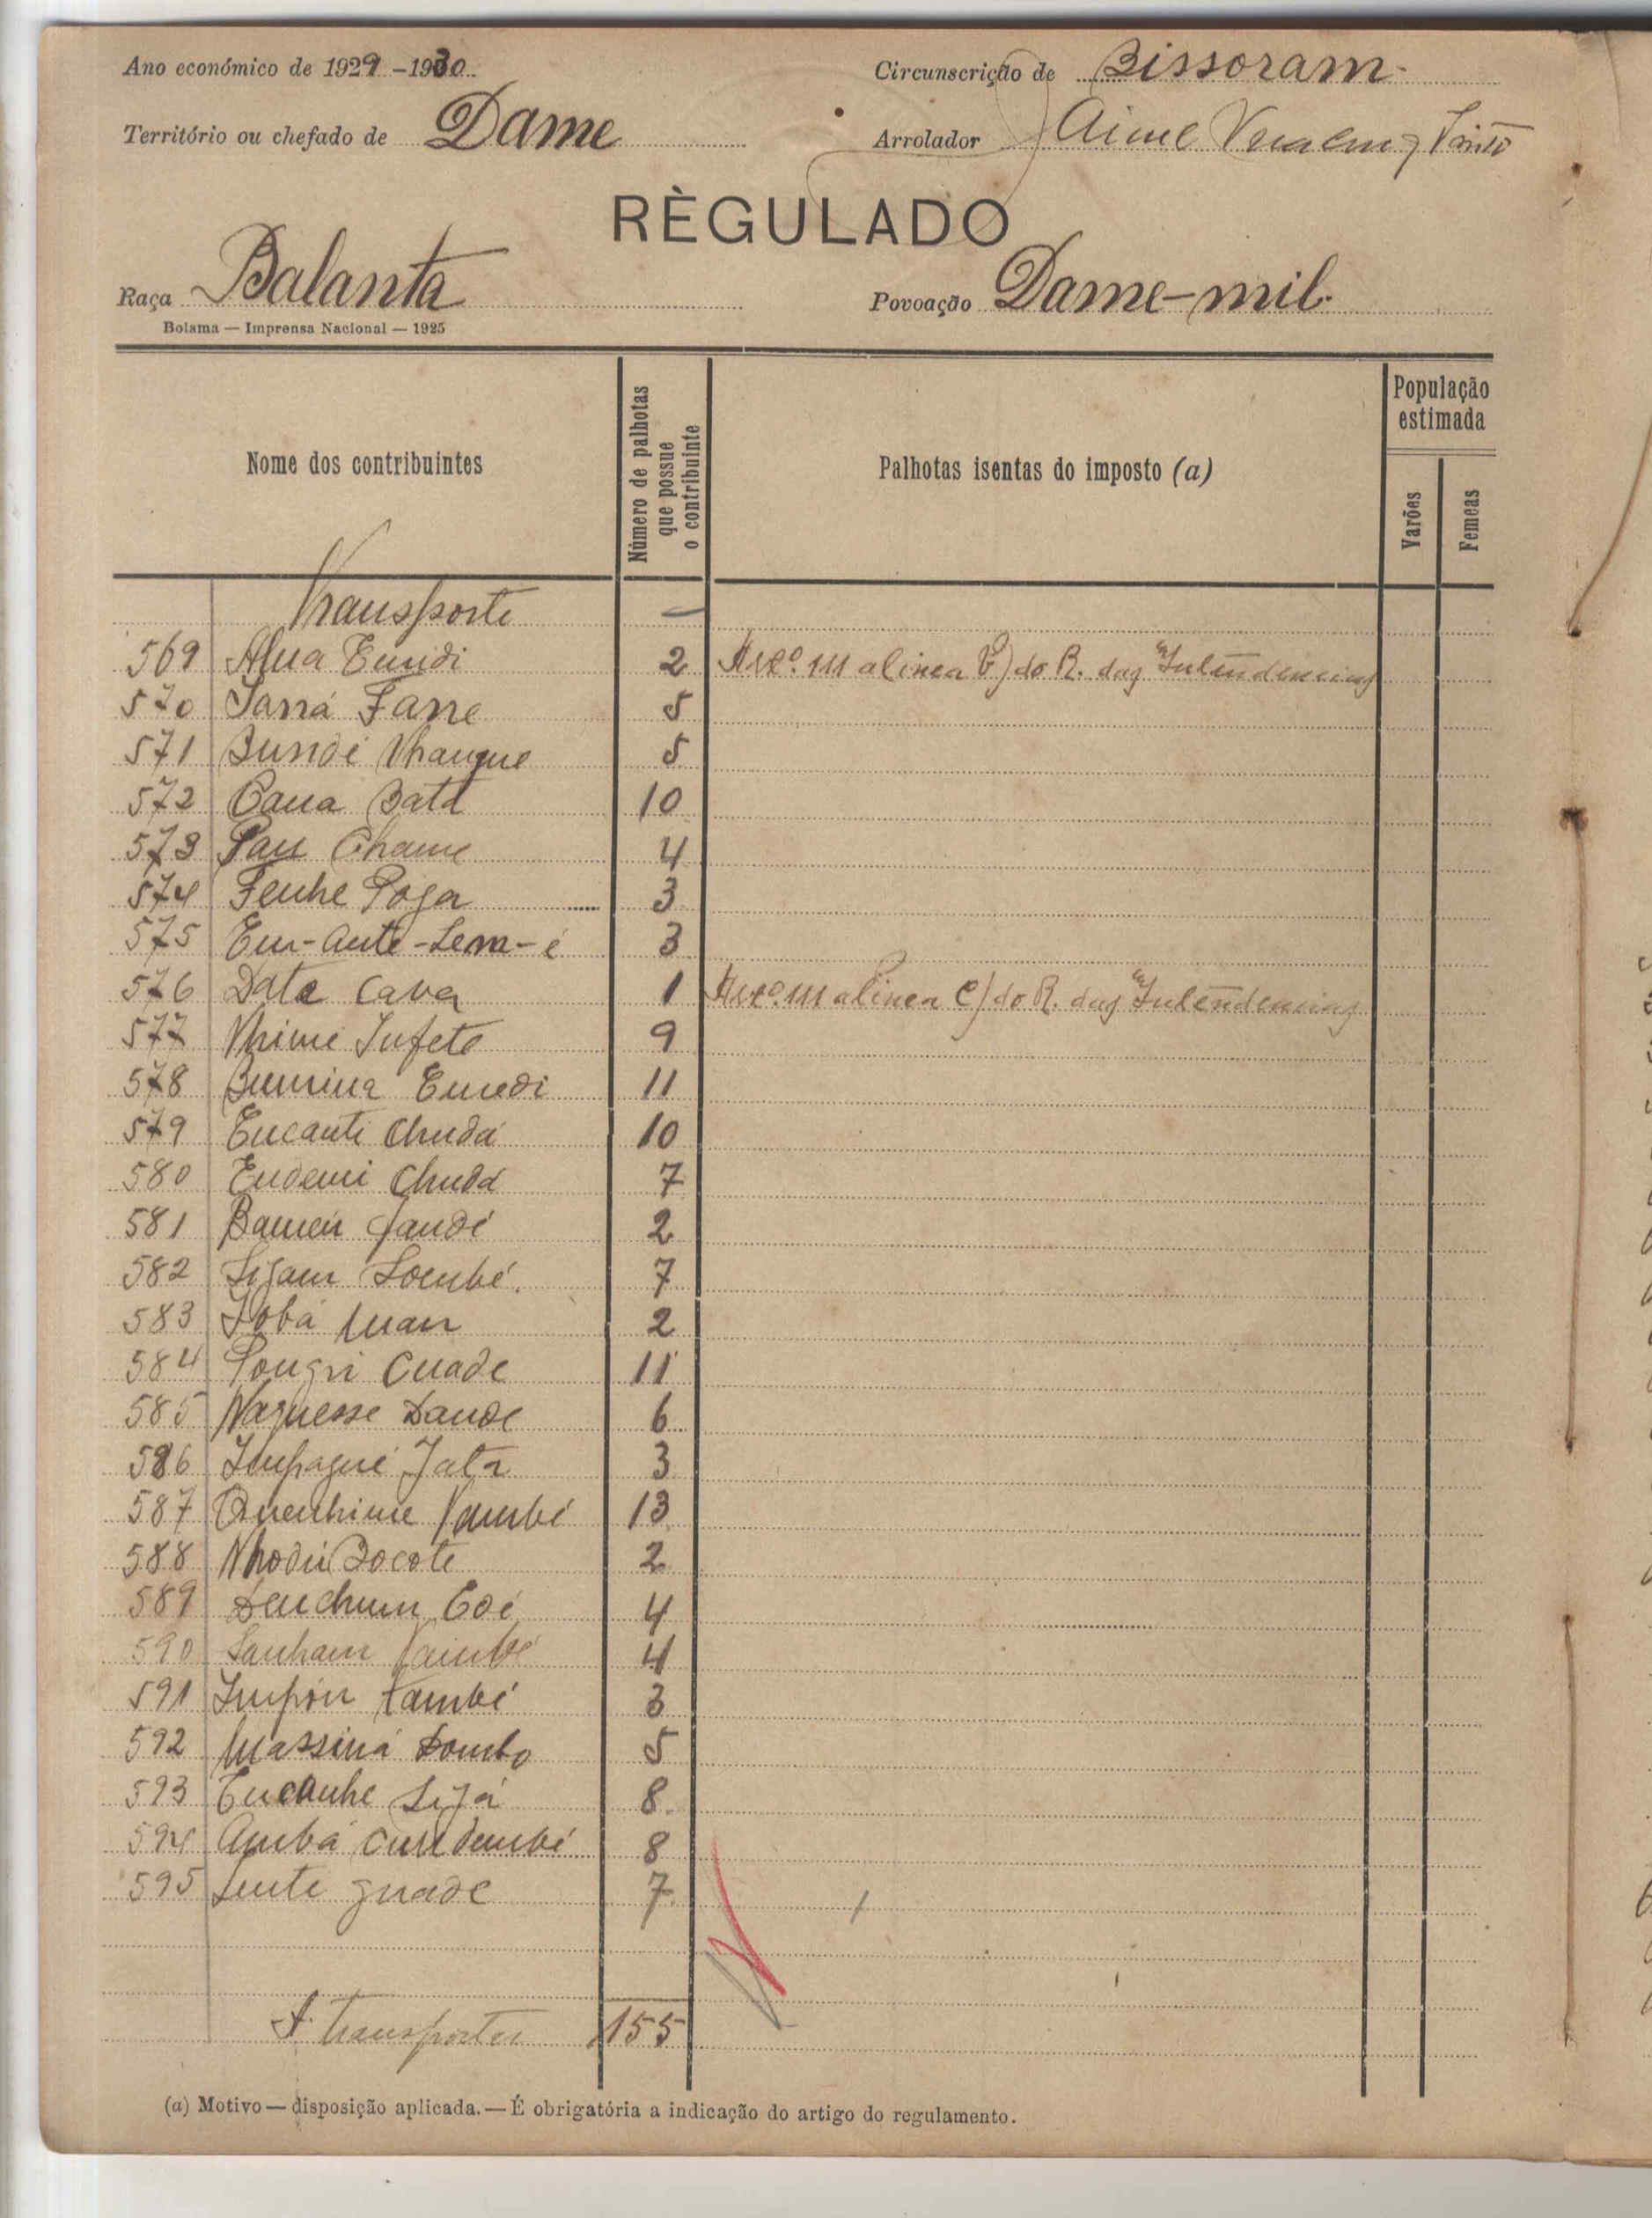 Ano económico de 1929-1930
Circunscrição de Bissoram
Território ou chefado de Dame
Arrolador
RÈGULADO
Raça Balanta
Povoação Dame-mil
Bolama — Imprensa Nacional — 1925
Nome dos contribuintes
Número de palhotas que possue o contribuinte
Palhotas isentas do imposto (a)
População estimada
Varões
Femeas
Transporte —
569 Alua Eundi 2 Artº. 111 alinea b) do R. das Intendencias
570 Sanná Fanne 5
571 Bundé Nhangue 5
572 Cana Batá 10
573 Pau Chame 4
574 Fenhe Poga 3
575 Eur-Ante-Sem-é 3
576 Data Cava 1 Artº. 111 alinea c) do R. das Intendencias
577 Nhime Infete 9
578 Bumina Emedi 11
579 Encanti Chudá 10
580 Endemi Chudá 7
581 Bamen Jandé 2
582 Sigam Sombé 7
583 Iobá Man 2
584 Pougri Cuade 11
585 Naguesse Dande 6
586 Impagué Jatá 3
587 Quenhime Nambé 13
588 Nhodu Bocote 2
589 Denchum Coé 4
590 Sanham Nambé 4
591 Impon Nambé 3
592 Massiná Dombo 5
593 Encanhe Sijá 8
594 Ambá Cundumbé 8
595 Sente Guade 7
A transportar 155
(a) Motivo — disposição aplicada. — É obrigatória a indicação do artigo do regulamento.